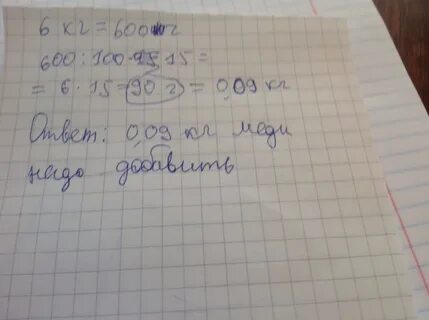 6 кг = 600 г
600 : 100 · 15 =
= 6 · 15 = 90 г = 0,09 кг
Ответ: 0,09 кг меди
надо добавить